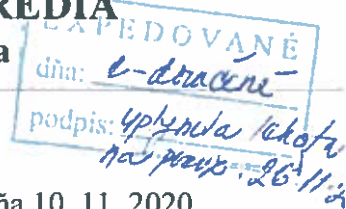 REDIA
a
EXPEDOVANÉ
dňa: e-doručené
podpis: uplynula lehota
na prevz. 26.11.2
ňa 10. 11. 2020